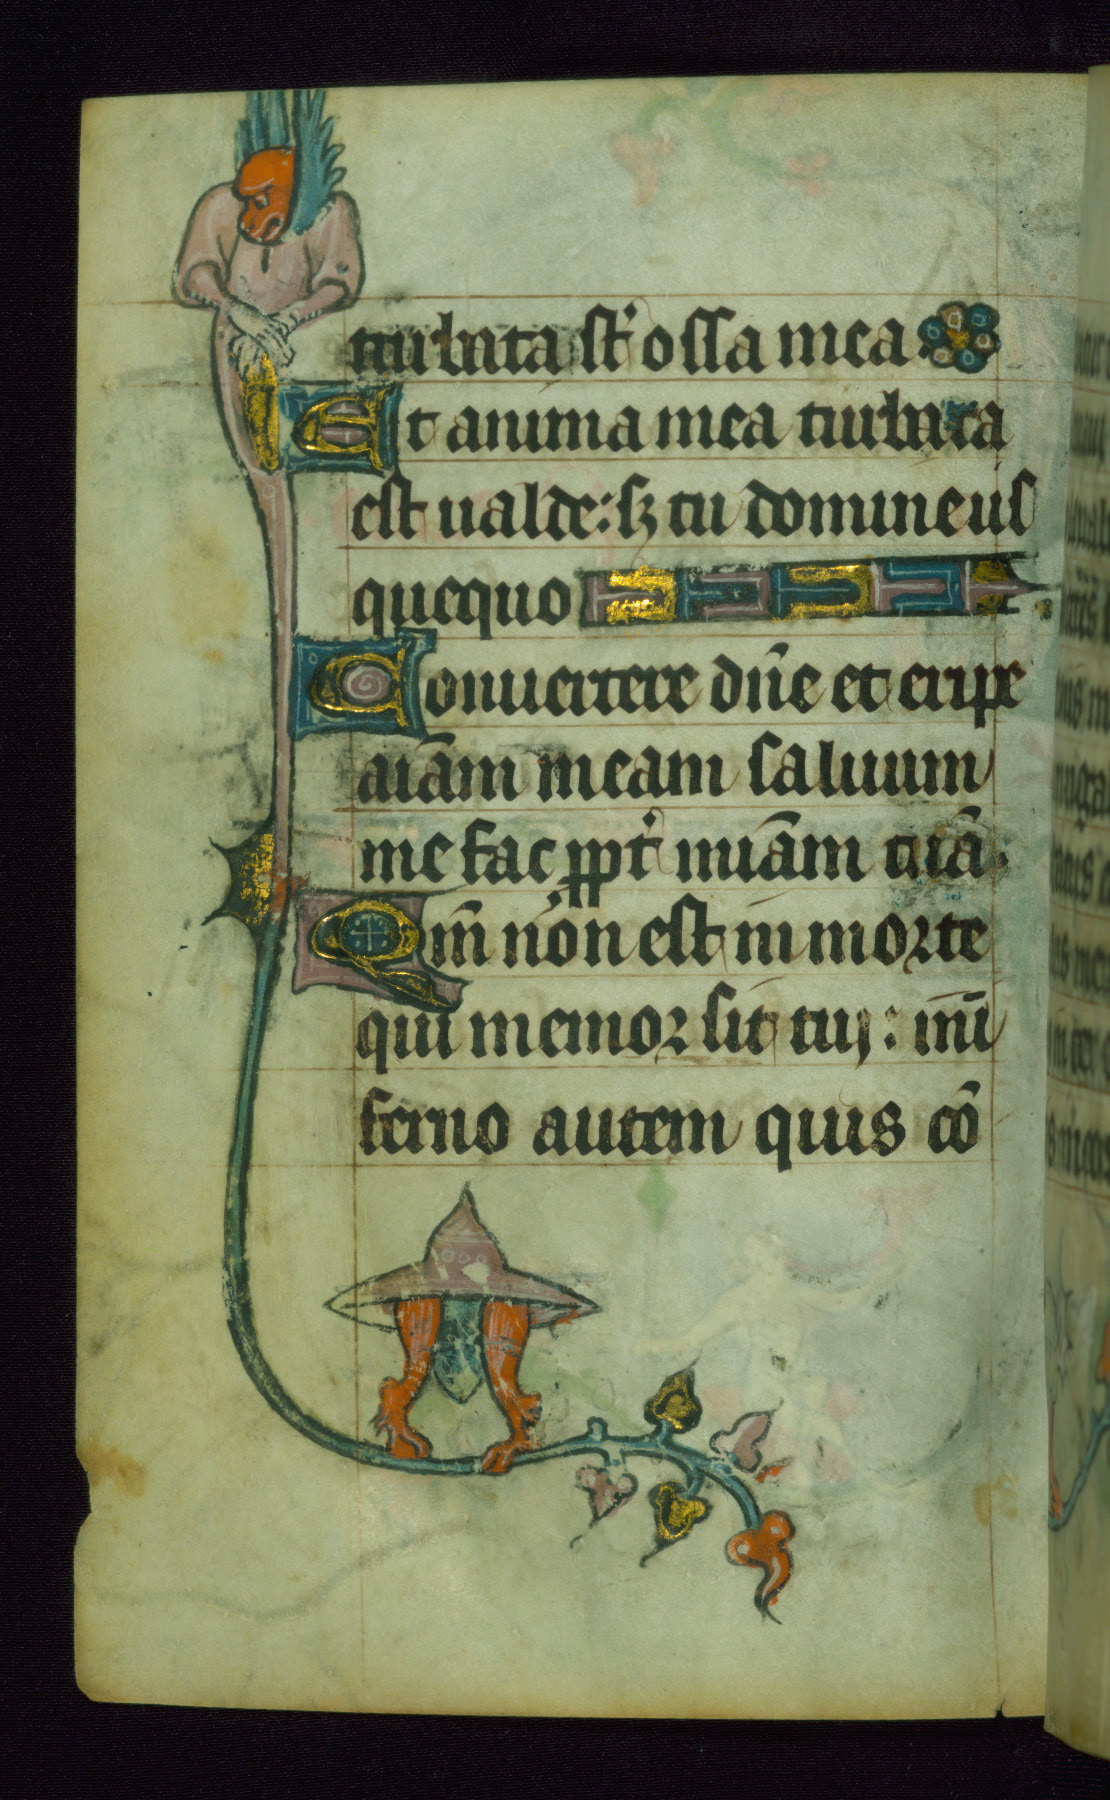 turbata st̾ ossa mea
Et anima mea turbata
est ualde: sꝫ tu domine us
quequo
Conuertere dn̄e et eripe
aīam meam saluum
me fac ꝓpt̾ mīam tuā
Qm̄ non est in morte
qui memor sit tui: in ī
ferno autem quis cō